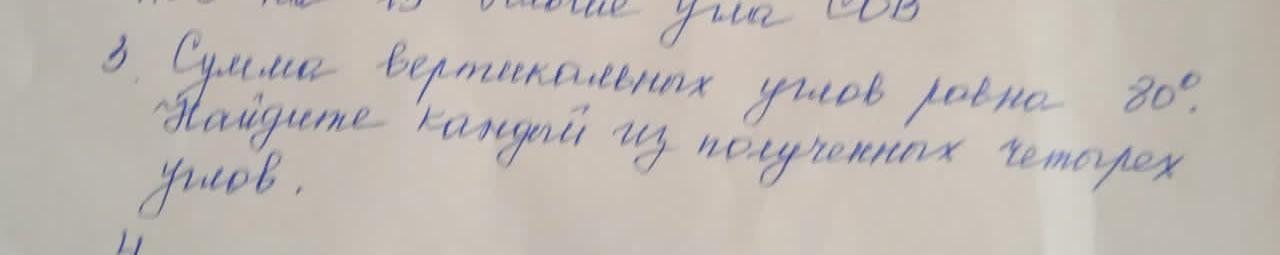 углa СОВ
3. Сумма вертикальных углов равна 80°.
Найдите каждый из полученных четырех
углов.
4